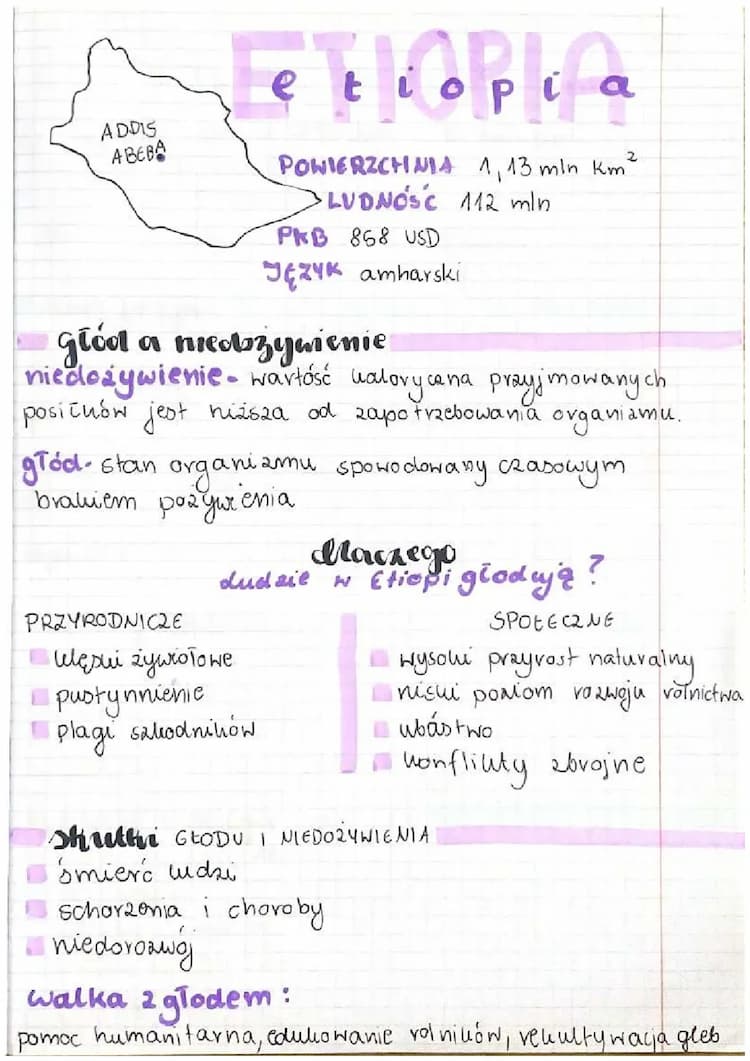 ETIOPIA
etiopia
ADDIS
ABEBA
POWIERZCHNIA 1,13 mln km²
LUDNOŚĆ 112 mln
PKB 858 USD
JĘZYK amharski
głód a niedożywienie
niedożywienie- wartość kaloryczna przyjmowanych
posiłków jest niższa od zapotrzebowania organizmu.
głód- stan organizmu spowodowany czasowym
brakiem pożywienia
dlaczego
ludzie w Etiopi głodują?
PRZYRODNICZE
klęski żywiołowe
pustynnienie
plagi szkodników
SPOŁECZNE
wysoki przyrost naturalny
niski poziom rozwoju rolnictwa
ubóstwo
konflikty zbrojne
skutki GŁODU I NIEDOŻYWIENIA
śmierć ludzi
schorzenia i choroby
niedorozwój
walka z głodem:
pomoc humanitarna, edukowanie rolników, rekultywacja gleb